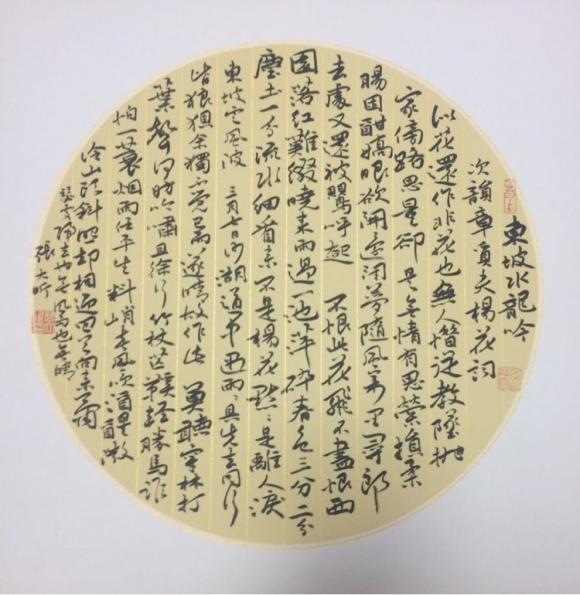 東坡水龍吟
次韻章質夫楊花詞
似花還作非花也無人惜從教墜抛
家傍路思量卻是無情有思縈損柔
腸困酣嬌眼欲開還閉夢隨風萬里尋郎
去處又還被鶯呼起 不恨此花飛不盡恨西
園落紅難綴曉來雨過一池萍碎春色三分二分
塵土一分流水細看來不是楊花點點是離人淚
東坡定風波 三月七日沙湖道中遇雨雨具先去同行
皆狼狽余獨不覺已而遂晴故作此 莫聽穿林打
葉聲何妨吟嘯且徐行竹杖芒鞋輕勝馬誰
怕一蓑烟雨任平生 料峭春風吹酒醒微
冷山頭斜照却相迎回首向來蕭
瑟處歸去也無風雨也無晴
張大